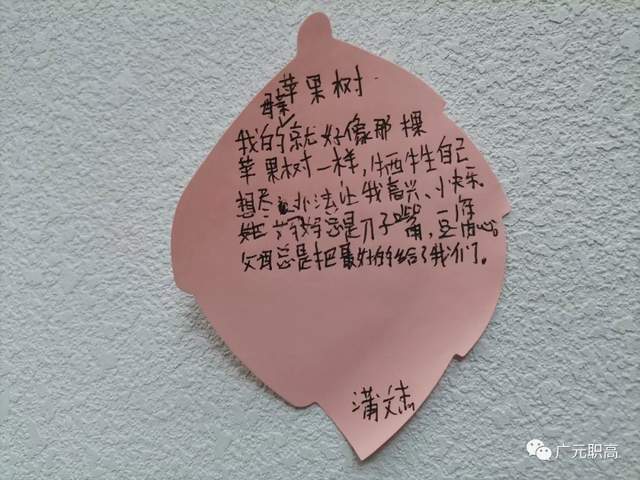 苹果树
母亲
我的就好像那棵
苹果树一样,牺牲自己
想尽办法让我高兴、快乐
她总是刀子嘴,豆腐心。
父母总是把最好的给了我们。
蒲文杰
广元职高